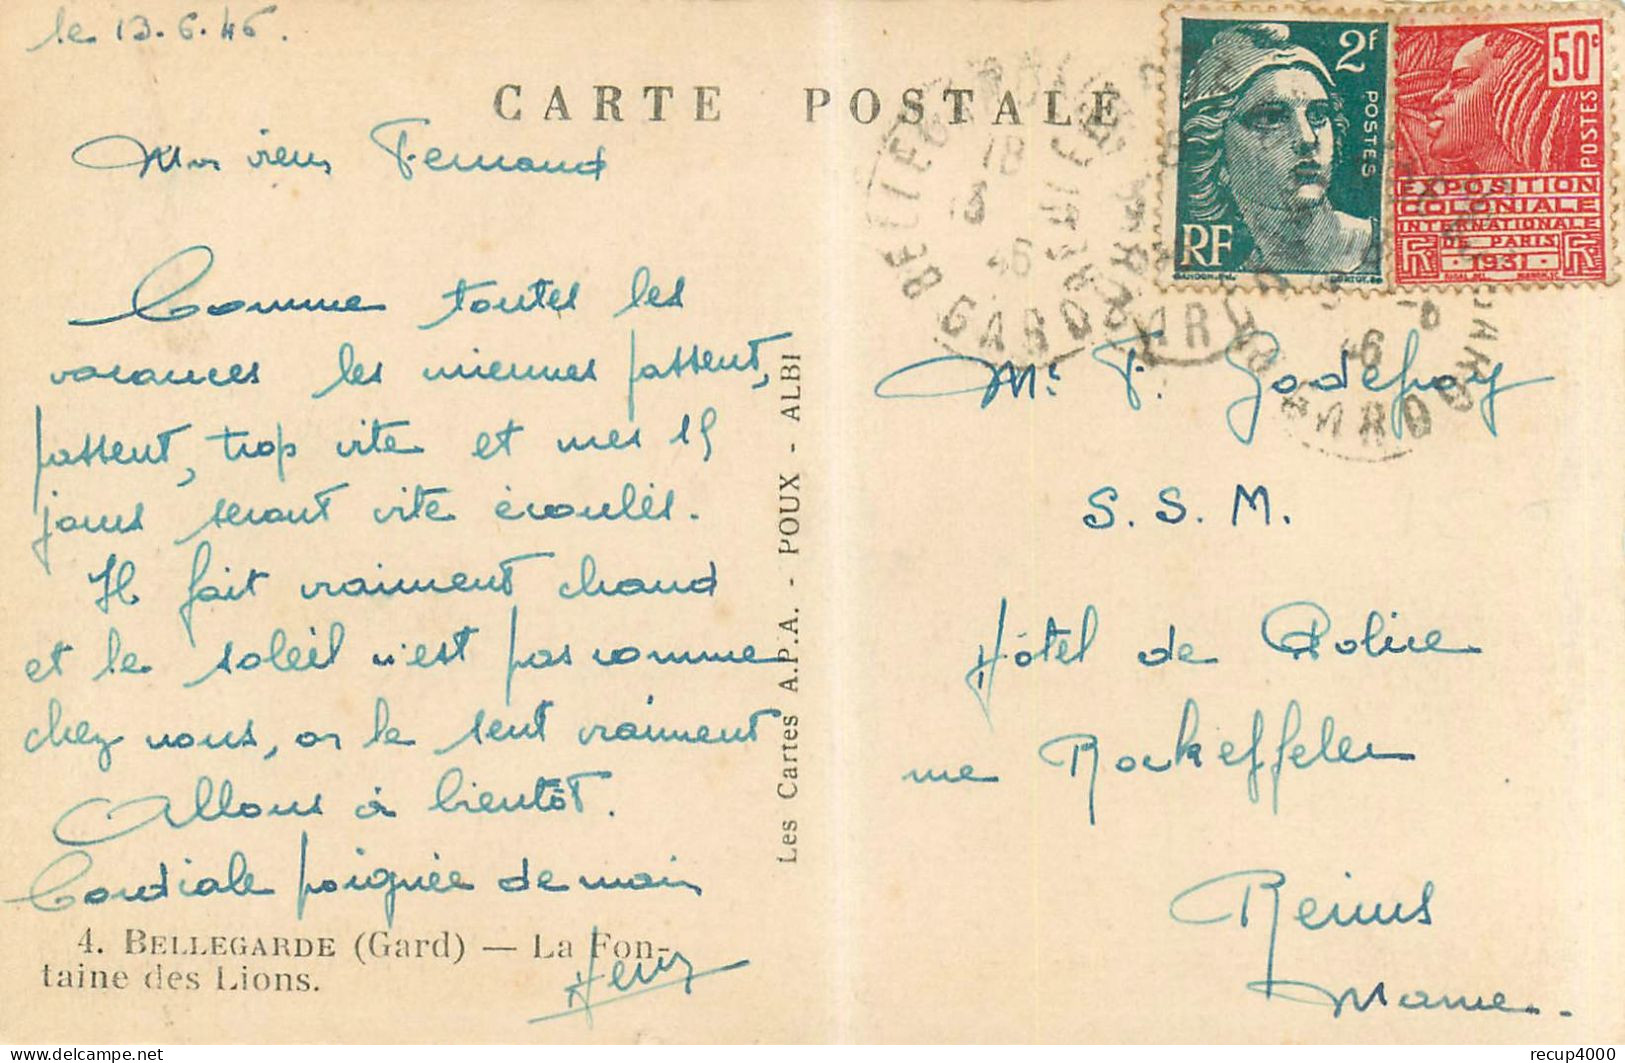 le 13.6.46.
CARTE POSTALE
Mon vieux Fernand
Comme toutes les
vacances les miennes passent,
passent, trop vite et mes 15
jours seront vite écoulés.
Il fait vraiment chaud
et le soleil n'est pas comme
chez nous, on le sent vraiment
Allons à bientôt.
Cordiale poignée de main
4. BELLEGARDE (Gard) — La Fon-
taine des Lions.
Les Cartes A.P.A. - POUX - ALBI
2f
POSTES
RF
50c
POSTES
EXPOSITION
COLONIALE
INTERNATIONALE
DE PARIS
1931
RF
BELLEGARDE
18
13
46
GARD
Mr. F. Godefroy
S. S. M.
Hôtel de Police
rue Rockeffeler
Reims
Marne.
recup4000